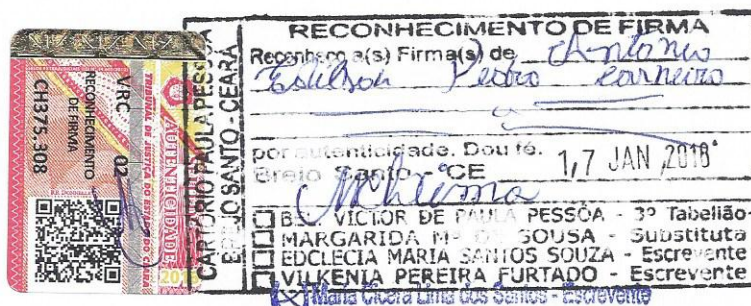 VRC 02
RECONHECIMENTO
DE FIRMA
CH375.308
TRIBUNAL DE JUSTIÇA DO ESTADO DO CEARÁ
AUTENTICIDADE
2018
CARTÓRIO PAULA PESSOA
BREJO SANTO - CEARÁ
RECONHECIMENTO DE FIRMA
Reconheço a(s) Firma(s) de Antônio
Pedro Carneiro
por autenticidade. Dou fé.
Brejo Santo - CE 17 JAN 2018
B.el. VICTOR DE PAULA PESSÔA - 3º Tabelião
MARGARIDA Mª DE SOUSA - Substituta
EDCLECIA MARIA SANTOS SOUZA - Escrevente
VILKENIA PEREIRA FURTADO - Escrevente
(x) Maria Cicera Lima dos Santos - Escrevente